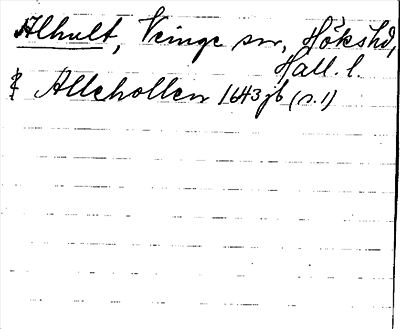 Alhult, Veinge sn, Hökshd,
Hall. l.
Allehollen 1643 jb (s. 1)